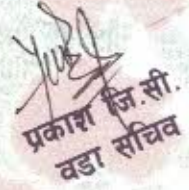 प्रकाश जि.सी.
वडा सचिव